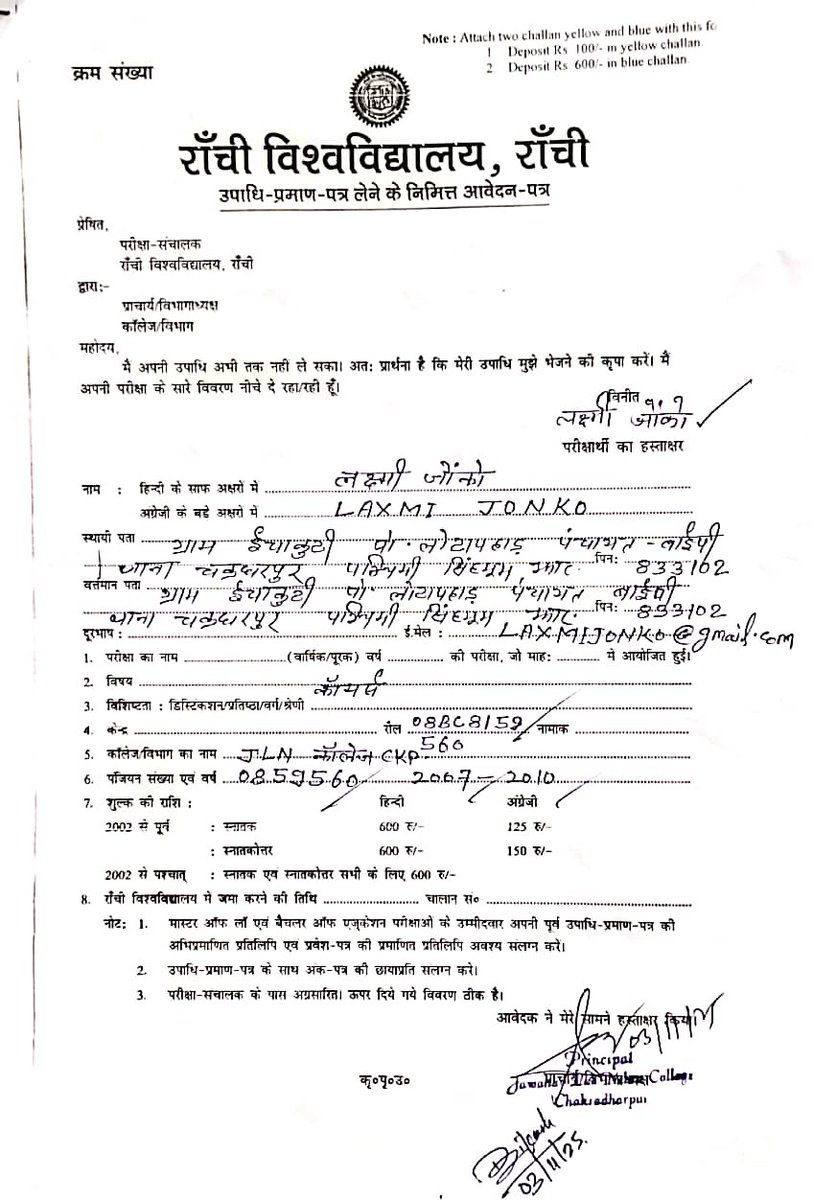 Note : Attach two challan yellow and blue with this fo
1 Deposit Rs 100/- in yellow challan
2 Deposit Rs 600/- in blue challan.
क्रम संख्या
राँची विश्वविद्यालय, राँची
उपाधि-प्रमाण-पत्र लेने के निमित्त आवेदन-पत्र
प्रेषित,
परीक्षा-संचालक
राँची विश्वविद्यालय, राँची
द्वारा:-
प्राचार्य/विभागाध्यक्ष
कॉलेज/विभाग
महोदय,
मै अपनी उपाधि अभी तक नही ले सका। अत: प्रार्थना है कि मेरी उपाधि मुझे भेजने की कृपा करें। मैं
अपनी परीक्षा के सारे विवरण नीचे दे रहा/रही हूँ।
विनीत
लक्ष्मी
परीक्षार्थी का हस्ताक्षर
नाम : हिन्दी के साफ अक्षरो मे लक्ष्मी जोंको
अंग्रेजी के बड़े अक्षरो में LAXMI JONKO
स्थायी पता ग्राम ईचाकुटी पो. लोटापहाड़ पंचायत - बाईपी
थाना चक्रधरपुर पश्चिमी सिंहभूम झार. पिन: 833102
वर्त्तमान पता ग्राम ईचाकुटी पो. लोटापहाड़ पंचायत बाईपी
थाना चक्रधरपुर पश्चिमी सिंहभूम झार. पिन: 833102
दूरभाष : ई.मेल : LAXMIJONKO@gmail.com
1. परीक्षा का नाम (वार्षिक/पूरक) वर्ष की परीक्षा, जो माह: मे आयोजित हुई।
2. विषय
कॉमर्स
3. विशिष्टता : डिस्टिंकशन/प्रतिष्ठा/वर्ग/श्रेणी
4. केन्द्र रौल 08BC8159 नामाक
560
5. कॉलेज/विभाग का नाम JLN कॉलेज CKP
6. पंजियन संख्या एवं वर्ष 0859560 2007-2010
7. शुल्क की राशि : हिन्दी अंग्रेजी
2002 से पूर्व : स्नातक 600 रु/- 125 रु/-
: स्नातकोत्तर 600 रु/- 150 रु/-
2002 से पश्चात् : स्नातक एवं स्नातकोत्तर सभी के लिए 600 रु/-
8. राँची विश्वविद्यालय मे जमा करने की तिथि चालान सं०
नोट: 1. मास्टर ऑफ लॉ एवं बैचलर ऑफ एजुकेशन परीक्षाओ के उम्मीदवार अपनी पूर्व उपाधि-प्रमाण-पत्र की
अभिप्रमाणित प्रतिलिपि एव प्रवेश-पत्र की प्रमाणित प्रतिलिपि अवश्य संलग्न करें।
2. उपाधि-प्रमाण-पत्र के साथ अंक-पत्र की छायाप्रति सलग्न करे।
3. परीक्षा-संचालक के पास अग्रसारित। ऊपर दिये गये विवरण ठीक है।
आवेदक ने मेरे सामने हस्ताक्षर किया।
Principal
College
Chakradharpur
कृ०पृ०उ०
03/11/25.